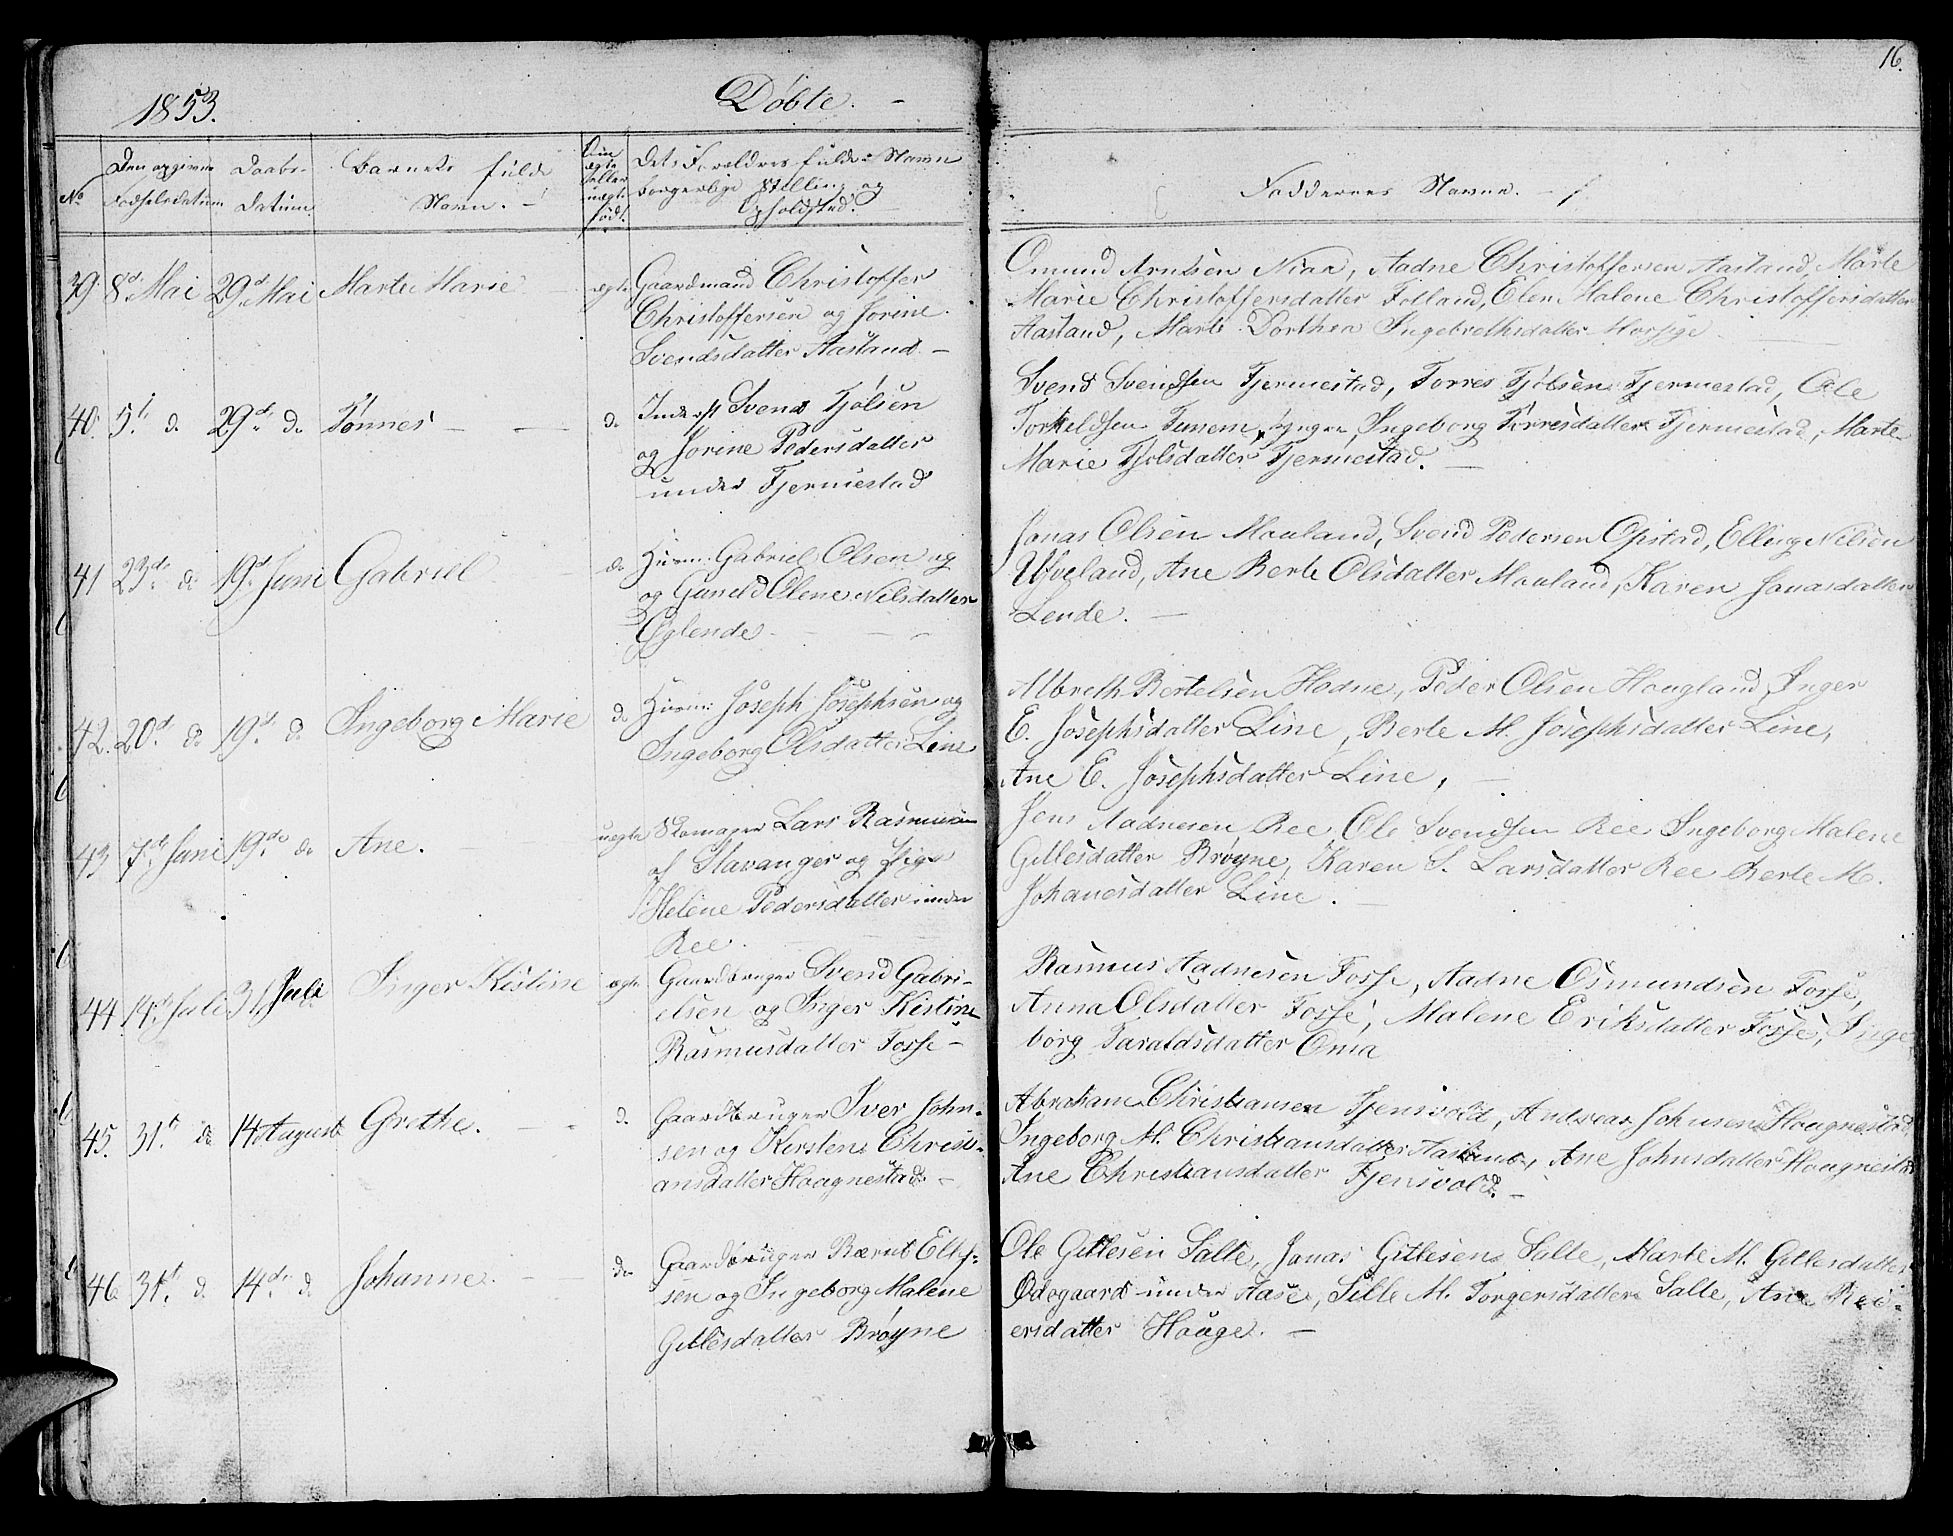 16.
1853.
Døbte. -
No
Den opgivne Fødselsdatum
Daabs-Datum.
Barnets fulde Navn. -
Om ægte eller uægte født.
Dets Forældres fulde Navn borgerlige Stilling og Opholdsted.
Faddernes Navne. -
39. 8d. Mai 29d. Mai Marte Marie ægte Gaardmand Christoffer
Christoffersen og Jorine
Svendsdatter Aasland. -
Omund Arntsen Niaa, Aadne Christoffersen Aasland, Marte
Marie Christoffersdatter Folland, Elen Malene Christoffersdatter
Aasland, Marte Dorthea Ingebrethsdatter Morsige
40. 5t. do 29d. do Tønnes - - do Inderst Svend Tjølsen
og Jorine Pedersdatter
under Tjermestad
Svend Svendsen Tjermestad, Torres Tjølsen Tjermestad, Ole
Torkeldsen Tunem yngre, Ingeborg Torresdatter Tjermestad, Marte
Marie Tjølsdatter Tjermestad. -
41 23d. do 19d. Juni Gabriel do Huusm: Gabriel Olsen og
og Guneld Olene Nilsdatter
Øglende. - - -
Jonas Olsen Maaland, Svend Pedersen Opstad, Elling Nilsen
Ueland, Ane Berte Olsdatter Maaland, Karen Jonasdatter
Lende. -
42. 20d. do 19d. do Ingeborg Marie do Huusm: Joseph Josephsen og
Ingeborg Olsdatter Line
Albreth Bertelsen Hodne, Peder Olsen Haugland, Inger
E. Josephsdatter Line, Berte M. Josephsdatter Line,
Ane E. Josephsdatter Line, -
43 7d. Juni 19d. do Ane. uægte Skomager Lars Rasmussen
af Stavanger og Pige
Helene Pedersdatter under
Ree.
Jens Aadnesen Ree, Ole Svendsen Ree Ingeborg Malene
Gitlesdatter Brøyne, Karen S. Larsdatter Ree Berte M.
Johanesdatter Line. -
44 14d. Juli 31 Juli Inger Kistine ægte Gaardbruger Svend Gabri-
elsen og Inger Kistine
Rasmusdatter Fosse -
Rasmus Aadnesen Fosse, Aadne Osmundsen Fosse,
Anna Olsdatter Fosse, Malene Eriksdatter Fosse, Inge
borg Taraldsdatter Onia
45. 31t. do 14 August Grethe. - - d. Gaardbruger Iver John-
sen og Kirsten Christi-
ansdatter Haagnestad. -
Abraham Christiansen Tjensvold, Andreas Johnsen Haagnestad
Ingeborg M. Christiansdatter Aasland, Ane Johnsdatter Haagnestad
Ane Christiansdatter Tjensvold. -
46 31t. d. 14d. d Johanne. - do Gaardbruger Bærnt Ellef-
sen og Ingeborg Malene
Gitlesdatter Brøyne
Ole Gitlesen Salte, Jonas Gitlesen Salte, Marte M. Gitlesdatter
Ødegaard under Aase, Sille M. Torgersdatter Salte, Ane Rei-
ersdatter Hauge. -